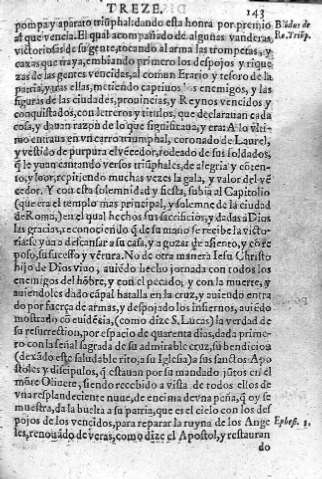 TREZE.
143
pompa y aparato triũphal: dando esta honra por premio
al que vencia. El qual acompañado de algunas vanderas
victoriosas de su gente, tocando al arma las trompetas, y
caxas que traya, embiando primero los despojos y rique
zas de las gentes vencidas, al comun Erario y tesoro de la
patria, y tras ellas, metiendo captiuos los enemigos, y las
figuras de las ciudades, prouincias, y Reynos vencidos y
conquistados, con letreros y titulos, que declarauan cada
cosa, y dauan razon de lo que significaua, y era: A lo vlti-
mo entraua en vn carro triumphal, coronado de Laurel,
y vestido de purpura el vẽcedor, rodeado de sus soldados,
q̃ le yuan cantando versos triũphales, de alegria y cõten-
to, y loor, repitiendo muchas vezes la gala, y valor del vẽ
cedor. Y con esta solemnidad y fiesta, subia al Capitolio
(que era el templo mas principal, y solemne de la ciudad
de Roma,) en el qual hechos sus sacrificios, y dadas a Dios
las gracias, reconociendo q̃ de su mano se recibe la victo
ria: se yua a descansar a su casa, y a gozar de assiento, y cõ re
poso, su sucesso y vẽtura. No de otra manera Iesu Christo
hijo de Dios viuo, auiẽdo hecho jornada con todos los
enemigos del hõbre, y con el pecado, y con la muerte, y
auiendoles dado cãpal batalla en la cruz, y auiendo entra
do por fuerça de armas, y despojado los infiernos, auiẽdo
mostrado cõ euidẽcia, (como dize S. Lucas) la verdad de
su resurrection, por espacio de quarenta dias, dada prime-
ro con la señal sagrada de su admirable cruz, su bendicion
(dexãdo este saludable rito, a su Iglesia) a sus sanctos Apo
stoles y discipulos, q̃ estauan por su mandado jũtos en el
mõte Oliuete, siendo recebido a vista de todos ellos de
vna resplandeciente nuue, de encima de vna peña, q̃ oy se
muestra, da la buelta a su patria, que es el cielo con los des
pojos de los vencidos, para reparar la ruyna de los Ange
les, renouãdo de veras, como dize el Apostol, y restauran
do
Re. Triũp.
Ephes. 1.